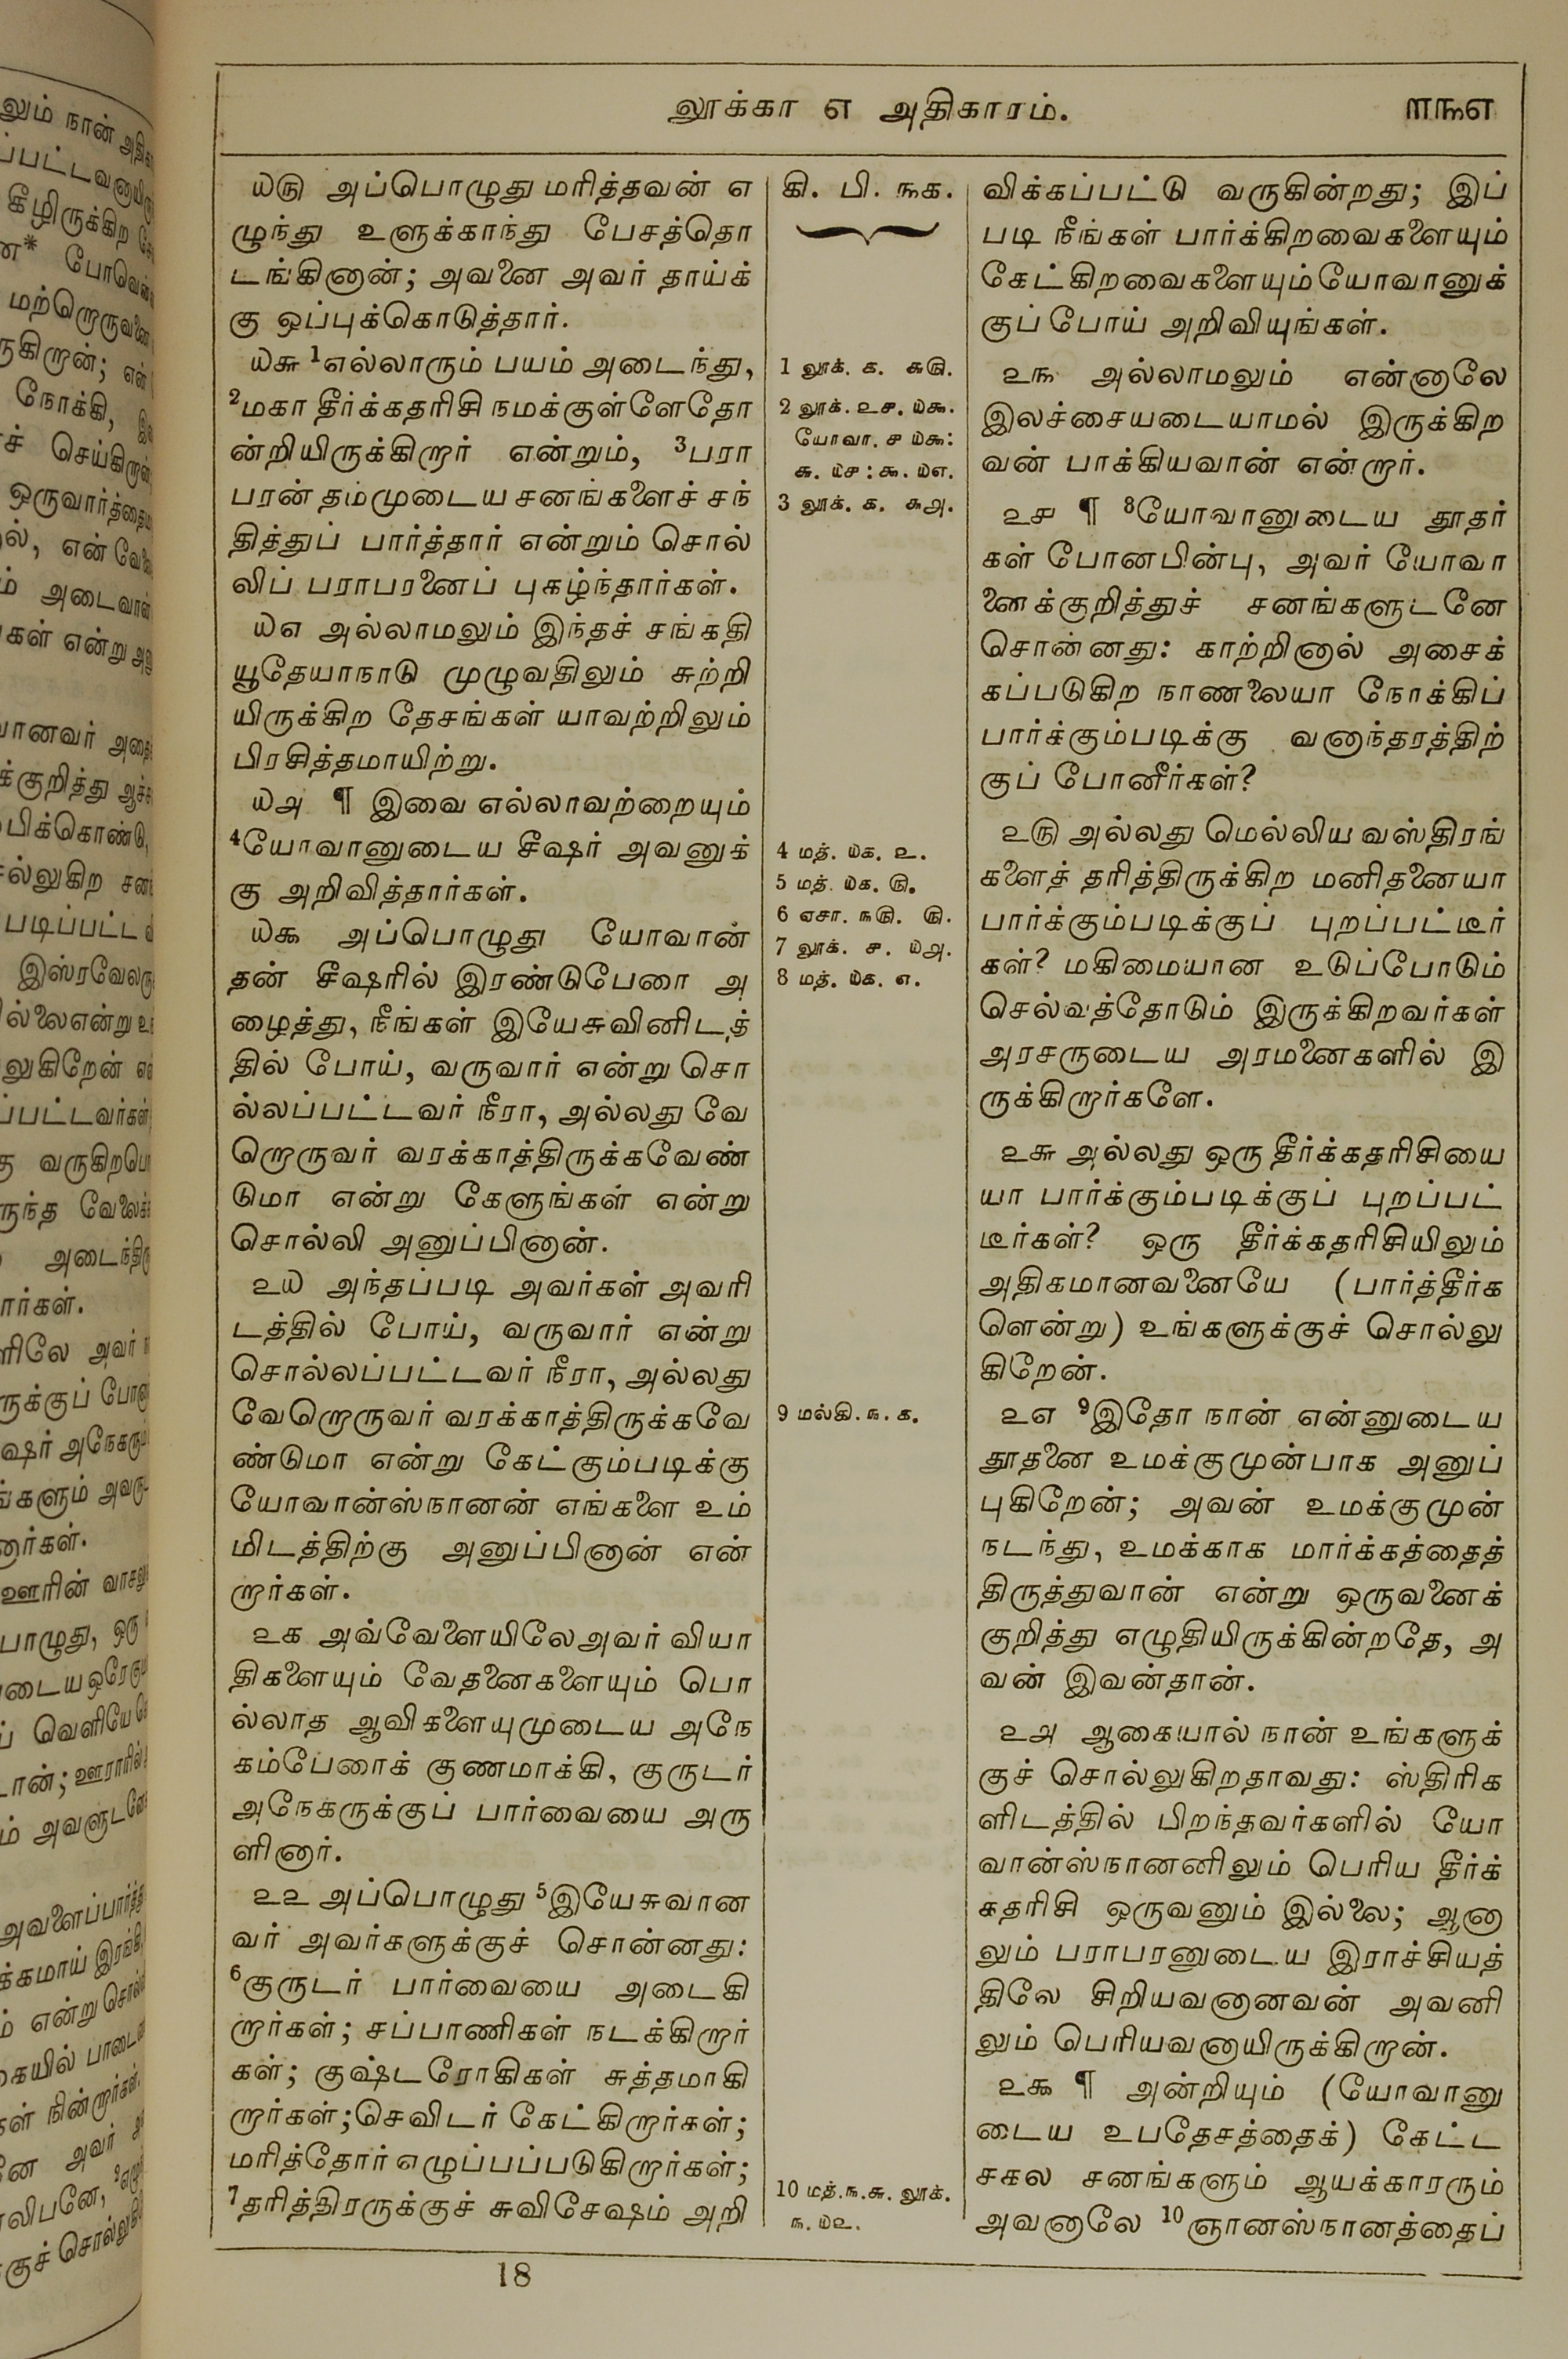 லூக்கா ௭ அதிகாரம்.
௱௩௭
௰௫ அப்பொழுது மரித்தவன் எ
ழுந்து உளுக்காந்து பேசத்தொ
டங்கினான்; அவனை அவர் தாய்க்
கு ஒப்புக்கொடுத்தார்.
௰௬ 1எல்லாரும் பயம் அடைந்து,
2மகா தீர்க்கதரிசி நமக்குள்ளேதோ
ன்றியிருக்கிறார் என்றும், 3பரா
பரன் தம்முடைய சனங்களைச் சந்
தித்துப் பார்த்தார் என்றும் சொல்
லிப் பராபரனைப் புகழ்ந்தார்கள்.
௰௭ அல்லாமலும் இந்தச் சங்கதி
யூதேயாநாடு முழுவதிலும் சுற்றி
யிருக்கிற தேசங்கள் யாவற்றிலும்
பிரசித்தமாயிற்று.
௰௮ ¶ இவை எல்லாவற்றையும்
4யோவானுடைய சீஷர் அவனுக்
கு அறிவித்தார்கள்.
௰௯ அப்பொழுது யோவான்
தன் சீஷரில் இரண்டுபேரை அ
ழைத்து, நீங்கள் இயேசுவினிடத்
தில் போய், வருவார் என்று சொ
ல்லப்பட்டவர் நீரா, அல்லது வே
றொருவர் வரக்காத்திருக்கவேண்
டுமா என்று கேளுங்கள் என்று
சொல்லி அனுப்பினான்.
௨௰ அந்தப்படி அவர்கள் அவரி
டத்தில் போய், வருவார் என்று
சொல்லப்பட்டவர் நீரா, அல்லது
வேறொருவர் வரக்காத்திருக்கவே
ண்டுமா என்று கேட்கும்படிக்கு
யோவான்ஸ்நானன் எங்களை உம்
மிடத்திற்கு அனுப்பினான் என்
றார்கள்.
௨௧ அவ்வேளையிலேஅவர் வியா
திகளையும் வேதனைகளையும் பொ
ல்லாத ஆவிகளையுமுடைய அநே
கம்பேரைக் குணமாக்கி, குருடர்
அநேகருக்குப் பார்வையை அரு
ளினார்.
௨௨ அப்பொழுது 5இயேசுவான
வர் அவர்களுக்குச் சொன்னது:
6குருடர் பார்வையை அடைகி
றார்கள்; சப்பாணிகள் நடக்கிறார்
கள்; குஷ்டரோகிகள் சுத்தமாகி
றார்கள்;செவிடர் கேட்கிறார்கள்;
மரித்தோர் எழுப்பப்படுகிறார்கள்;
7தரித்திரருக்குச் சுவிசேஷம் அறி
கி. பி. ௩௧.
1 லூக். ௧. ௬௫.
2 லூக். ௨௪. ௰௯.
யோவா. ௪ ௰௯:
௬. ௰௪: ௯. ௰௭.
3 லூக். ௧. ௬௮.
4 மத். ௰௧. ௨.
5 மத். ௰௧. ௫.
6 ஏசா. ௩௫. ௫.
7 லூக். ௪. ௰௮.
8 மத். ௰௧. ௭.
9 மல்கி. ௩. ௧.
10 மத்.௩.௬. லூக்.
௩. ௰௨.
விக்கப்பட்டு வருகின்றது; இப்
படி நீங்கள் பார்க்கிறவைகளையும்
கேட்கிறவைகளையும்யோவானுக்
குப் போய் அறிவியுங்கள்.
௨௩ அல்லாமலும் என்னாலே
இலச்சையடையாமல் இருக்கிற
வன் பாக்கியவான் என்றார்.
௨௪ ¶ 8யோவானுடைய தூதர்
கள் போனபின்பு, அவர் யோவா
னைக்குறித்துச் சனங்களுடனே
சொன்னது: காற்றினால் அசைக்
கப்படுகிற நாணலையா நோக்கிப்
பார்க்கும்படிக்கு வனாந்தரத்திற்
குப் போனீர்கள்?
௨௫ அல்லது மெல்லிய வஸ்திரங்
களைத் தரித்திருக்கிற மனிதனையா
பார்க்கும்படிக்குப் புறப்பட்டீர்
கள்? மகிமையான உடுப்போடும்
செல்வத்தோடும் இருக்கிறவர்கள்
அரசருடைய அரமனைகளில் இ
ருக்கிறார்களே.
௨௬ அல்லது ஒரு தீர்க்கதரிசியை
யா பார்க்கும்படிக்குப் புறப்பட்
டீர்கள்? ஒரு தீர்க்கதரிசியிலும்
அதிகமானவனையே (பார்த்தீர்க
ளென்று) உங்களுக்குச் சொல்லு
கிறேன்.
௨௭ 9இதோ நான் என்னுடைய
தூதனை உமக்குமுன்பாக அனுப்
புகிறேன்; அவன் உமக்குமுன்
நடந்து, உமக்காக மார்க்கத்தைத்
திருத்துவான் என்று ஒருவனைக்
குறித்து எழுதியிருக்கின்றதே, அ
வன் இவன்தான்.
௨௮ ஆகையால் நான் உங்களுக்
குச் சொல்லுகிறதாவது: ஸ்திரிக
ளிடத்தில் பிறந்தவர்களில் யோ
வான்ஸ்நானனிலும் பெரிய தீர்க்
கதரிசி ஒருவனும் இல்லை; ஆனா
லும் பராபரனுடைய இராச்சியத்
திலே சிறியவனானவன் அவனி
லும் பெரியவனாயிருக்கிறான்.
௨௯ ¶ அன்றியும் (யோவானு
டைய உபதேசத்தைக்) கேட்ட
சகல சனங்களும் ஆயக்காரரும்
அவனாலே 10ஞானஸ்நானத்தைப்
18